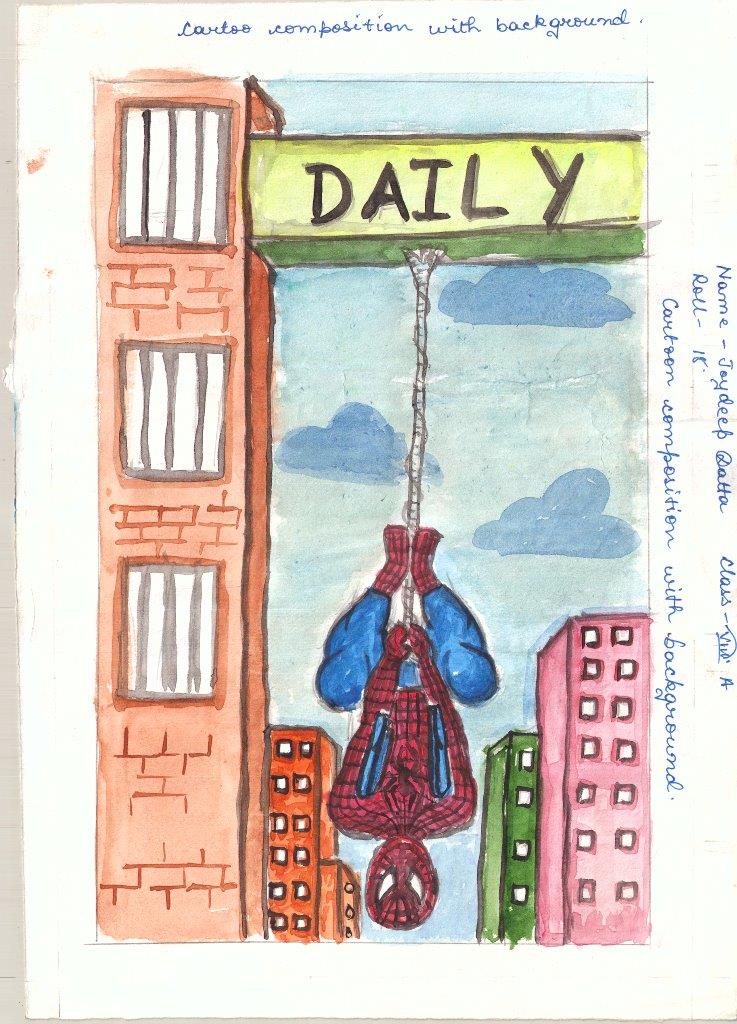 Cartoo composition with background.
DAILY
Name - Joydeep Datta Class - VIII A
Roll - 18.
Cartoon composition with background.